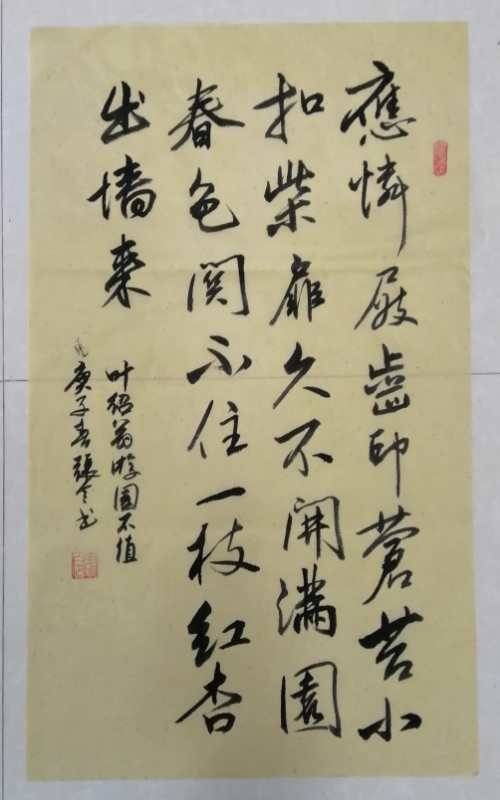 應憐屐齒印蒼苔小
扣柴扉久不開滿園
春色関不住一枝紅杏
出墻來
叶紹翁游園不值
庚子春張書